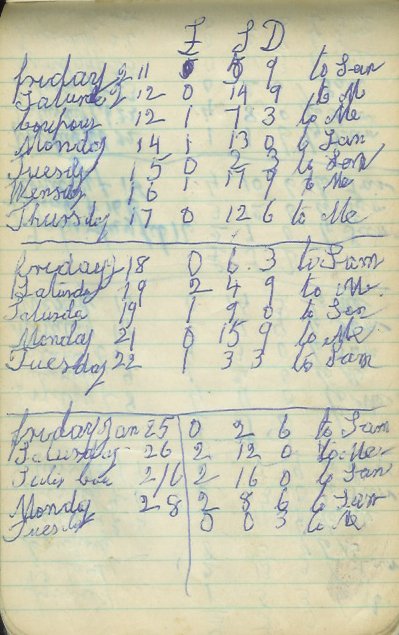 £ S D
friday 11 0 5 9 to San
Saturda 12 0 14 9 to Me
12 1 7 3 to Me
Monday 14 1 13 0 to San
Tuesdy 15 0 2 3 to San
Wensdy 16 1 17 9 to Me
Thursday 17 0 12 6 to Me
friday 18 0 6 3 to Sam
Saturday 19 2 4 9 to Me
Saturda 19 1 9 0 to San
Monday 21 0 15 9 to Me
Tuesday 22 1 3 3 to Sam
friday Jan 25 0 2 6 to Sam
Saturday 26 2 12 0 to Me
26 2 16 0 to San
Mondy 28 2 8 6 to San
Tuesd 0 0 3 to Me